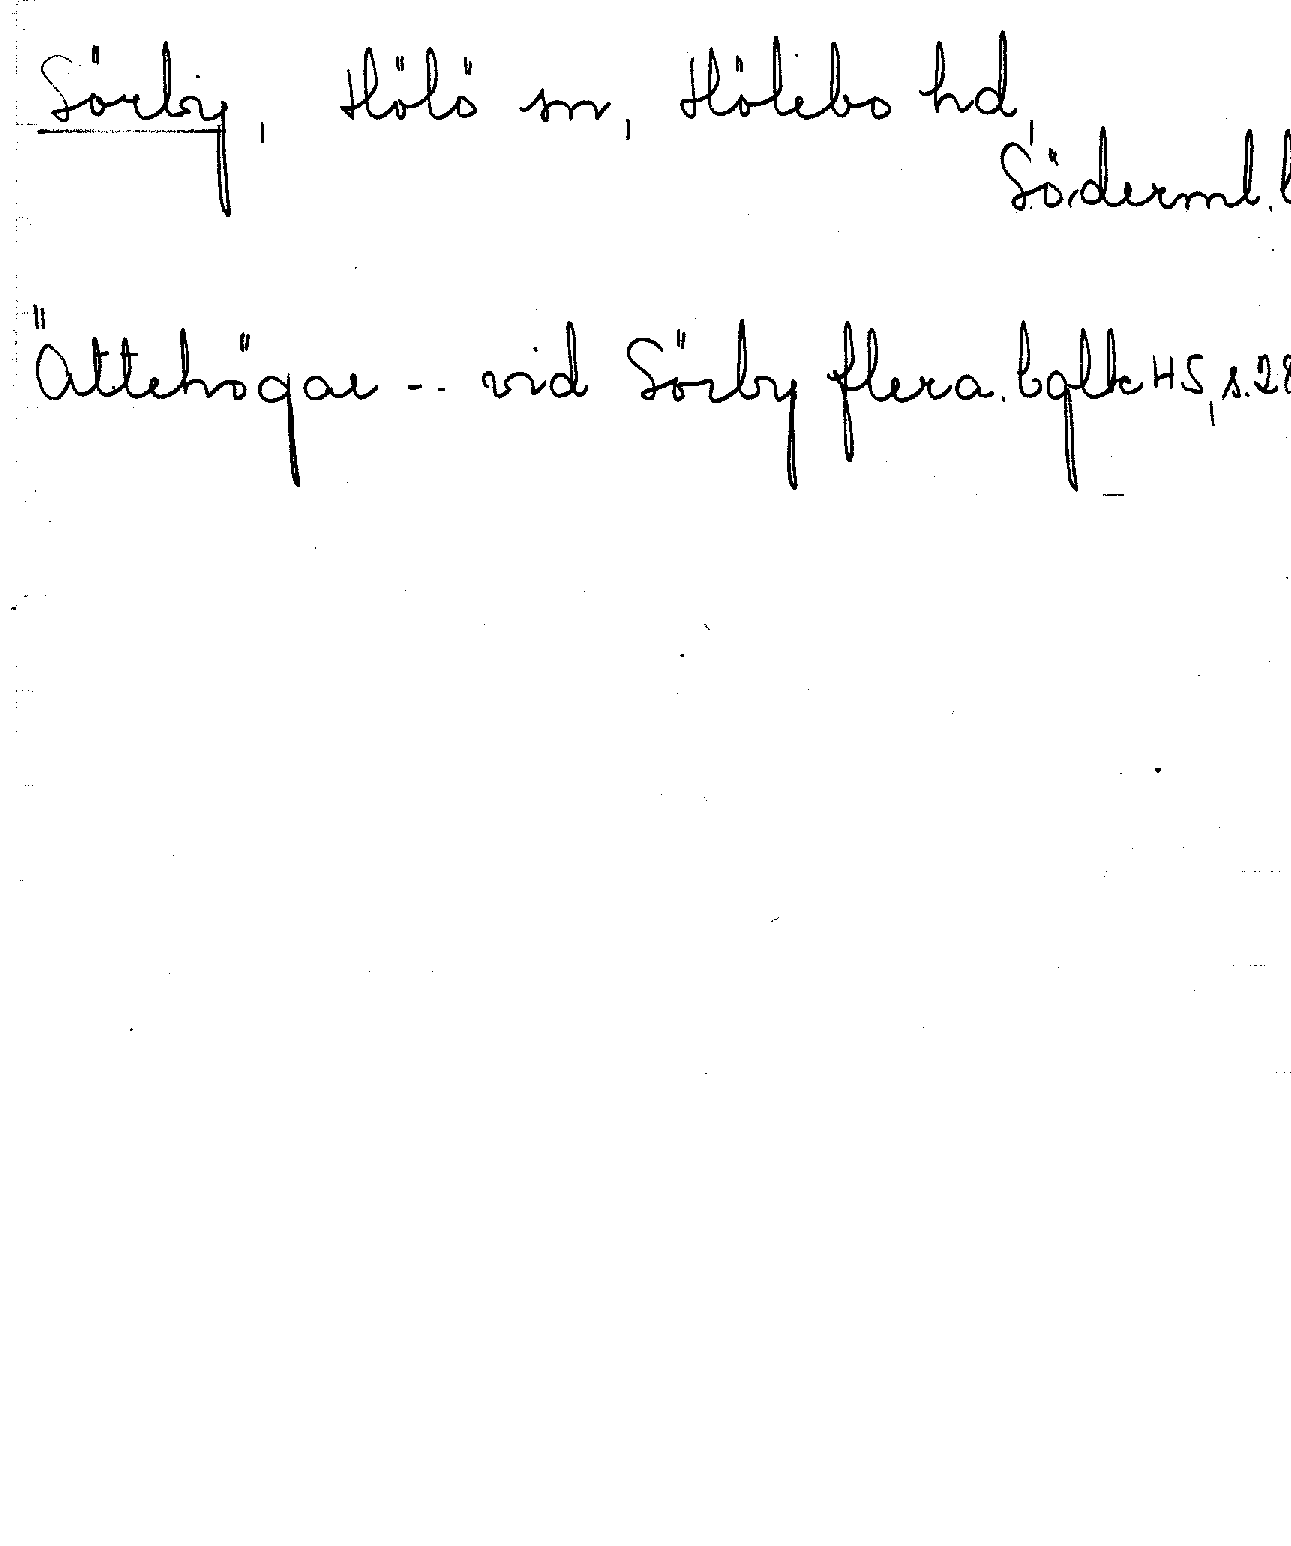 Sörby, Hölö sn, Hölebo hd,
Söderml. l
Ättehögar -- vid Sörby flera. bglk 45, s. 28